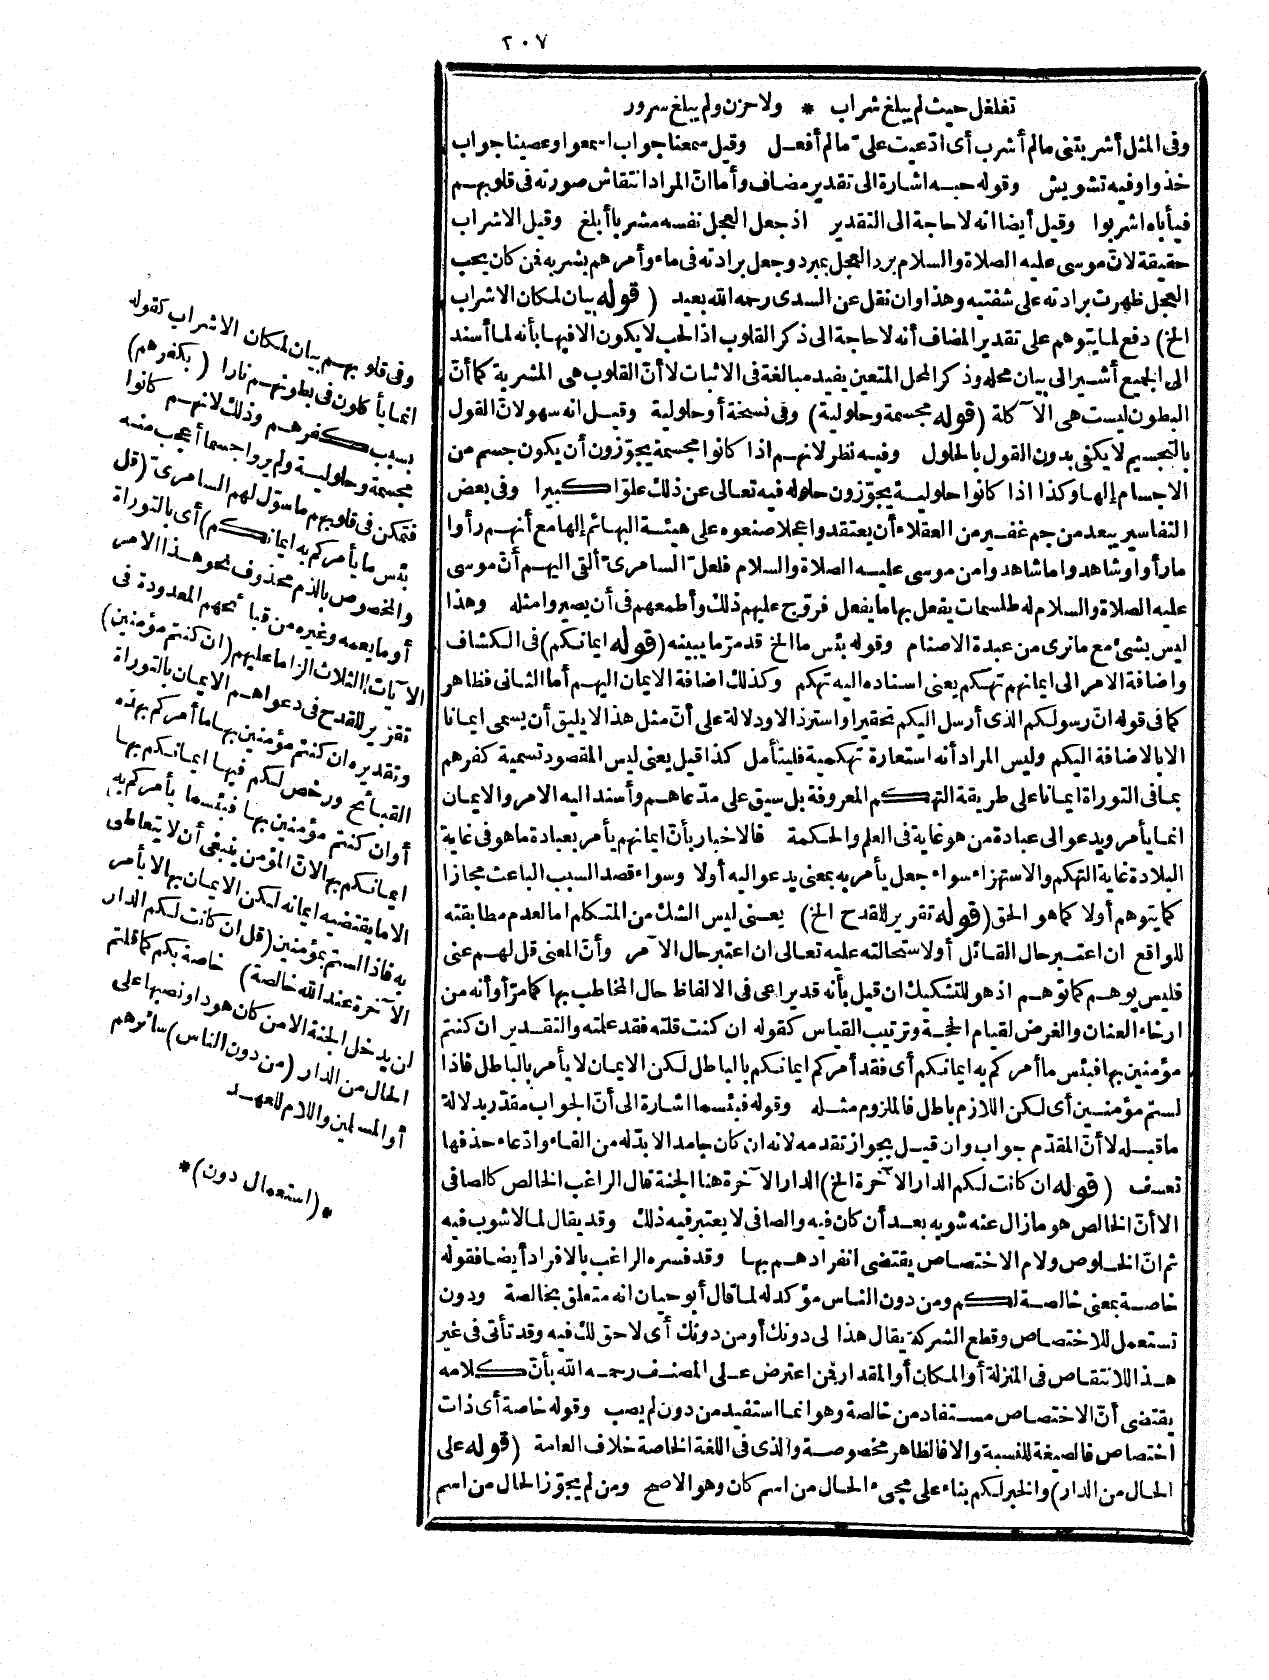 ٢٠٧
تغلغل حيث لم يبلغ شراب * ولا حزن ولم يبلغ سرور
وفى المثل أشر بتنى مالم أشرب أى ادّعيت علىّ مالم أفعـل وقيل سمعنا جواب اسمعوا وعصينا جواب
خذوا وفيه تشويش وقوله حبـه اشارة الى تقدير مضاف وأما انّ المراد انتقاش صورته فى قلوبهـم
فيأباه اشربوا وقيل أيضا انه لا حاجة الى التقدير اذ جعل العجل نفسه مشربا أبلغ وقيل الاشراب
حقيقة لانّ موسى عليه الصلاة والسلام برد العجل بمبرد وجعل برادته فى ماء وأمرهم بشربه فمن كان يحب
العجل ظهرت برادته على شفتيه وهذا وان نقل عن السدى رحمه الله بعيد (قوله بيان لمكان الاشراب
الخ) دفع لما يتوهم على تقدير المضاف أنه لا حاجة الى ذكر القلوب اذ الحب لا يكون الا فيها بأنه لما أسند
الى الجميع أشـير الى بيان محله وذكر المحل المتعين يفيد مبالغة فى الاثبات لا أنّ القلوب هى المشربة كما أنّ
البطون ليست هى الآكلة (قوله مجسمة وحلولية) وفى نسخة أو حلولية وقيـل انه سهو لانّ القول
بالتجسيم لا يكفى بدون القول بالحلول وفيه نظر لانهـم اذا كانوا مجسمة يجوّزون أن يكون جسم من
الاجسام إلها وكذا اذا كانوا حلوليـة يجوّزون حلوله فيه تعالى عن ذلك علوّا كبيرا وفى بعض
التفاسير يبعد من جم غفيـر من العقلاء أن يعتقدوا عجلا صنعوه على هيئـة البهائم إلها مع أنهـم رأوا
ما رأوا وشاهدوا ما شاهدوا من موسى عليـه الصلاة والسلام فلعل السامرىّ ألقى اليهـم أنّ موسى
عليه الصلاة والسلام له طلسمات يفعل بها ما يفعل فروّج عليهم ذلك وأطمعهم فى أن يصيروا مثله وهذا
ليس بشئ مع ما نرى من عبدة الاصنام وقوله بئس ما الخ قد مرّ ما يبينه (قوله ايمانكم) فى الكشاف
واضافة الامر الى ايمانهم تهـكم يعنى اسناده اليه تهكم وكذلك اضافة الايمان اليهـم أما الثانى فظاهر
كما فى قوله انّ رسولكم الذى أرسل اليكم تحقيرا واسترذالا ودلالة على أنّ مثل هذا لا يليق أن يسمى ايمانا
الا بالاضافة اليكم وليس المراد أنه استعارة تهكمية فليتأمل كذا قيل يعنى ليس المقصود تسمية كفرهم
بما فى التوراة ايمانا على طريقة التهـكم المعروفة بل سيق على مدّعاهـم وأسند اليه الامر والايمان
انمـا يأمر ويدعو الى عبادة من هو غاية فى العلم والحـكمة فالاخبار بأنّ ايمانهم يأمر بعبادة ما هو فى غاية
البلادة غاية التهكم والاستهزاء سواء جعل يأمر به بمعنى يدعو اليه أولا وسواء قصد السبب الباعث مجازا
كما يتوهم أولا كما هو الحق (قوله تقرير للقدح الخ) يعـنى ليس الشك من المتـكلم اما لعدم مطابقته
للواقع ان اعتـبر حال القـائل أو لاستحالته عليه تعالى ان اعتبر حال الآمر وأنّ المعنى قل لهـم عنى
فليس يوهـم كما توهـم اذ هو للتشكيك ان قيل بأنه قد يراعى فى الالفاظ حال المخاطب بها كما مرّ أو أنه من
ارخاء العنان والغرض لقيام الحجـة وترتيب القياس كقوله ان كنت قلته فقد علمته والتقـدير ان كنتم
مؤمنين بها فبئس ما أمركم به ايمانكم أى فقد أمركم ايمانكم بالباطل لـكن الايمان لا يأمر بالباطل فاذا
لستم مؤمنـين أى لكن اللازم باطل فالملزوم مثـله وقوله فبئسما اشارة الى أنّ الجواب مقدّر بدلالة
ما قبـله لا أنّ المقدّم جواب وان قيـل بجواز تقدمه لانه ان كان جامدا لا بدّ له من الفاء وادّعاء حذفها
تعسف (قوله ان كانت لكم الدار الآخرة الخ) الدار الآخرة هنا الجنة قال الراغب الخالص كالصافى
الا أنّ الخالص هو ما زال عنه شوبه بعـد أن كان فيه والصافى لا يعتبر فيه ذلك وقد يقال لما لا شوب فيه
ثم انّ الخـلوص ولام الاختصـاص يقتضى انفرادهـم بهـا وقد فسره الراغب بالافراد أيضا فقوله
خاصـة بمعنى خالصـة لـكم ومن دون النـاس مؤكد له لمـا قال أبو حيان انه متعلق بخالصة ودون
تستعمل للاختصاص وقطع الشركة يقال هذا لى دونك أو من دونك أى لا حق لك فيه وقد تأتى فى غير
هـذا للانتقـاص فى المنزلة أو المـكان أو المقدار فمن اعترض عـلى المصنـف رحمـه الله بأنّ كلامه
يقتضى أنّ الاختصاص مسـتفاد من خالصة وهو انمـا استفيد من دون لم يصب وقوله خاصة أى ذات
اختصاص فالصيغة للنسبة والا فالظاهر مخصوصـة والذى فى اللغة الخاصة خلاف العامة (قوله على
الحـال من الدار) والخبر لكم بناء على مجىء الحـال من اسم كان وهو الاصح ومن لم يجوّز الحال من اسم
وفى قلوبهـم بيان لمـكان الاشراب كقوله
انمـا يأكلون فى بطونهـم نارا (بكفرهم)
بسبب كفرهـم وذلك لانهـم كانوا
مجسمة وحلوليـة ولم يروا جسما أعجب منـه
فتمكن فى قلوبهم ما سوّل لهم السامرىّ (قل
بئس ما يأمركم به ايمانكم) أى بالتوراة
والمخصوص بالذم محذوف نحو هـذا الامر
أو ما يعمه وغيره من قبائحهم المعدودة فى
الآيات الثلاث الزاما عليهم (ان كنتم مؤمنين)
تقرير للقدح فى دعواهـم الايمـان بالتوراة
وتقديره ان كنتم مؤمنين بها ما أمركم بهذه
القبـائح ورخص لـكم فيهـا ايمـانـكم بهـا
أو ان كنتم مؤمنين بهـا فبئسما يأمركم به
ايمـانكم بها لانّ المؤمن ينبغى أن لا يتعاطى
الا ما يقتضيه ايمانه لـكن الايمـان بها لا يأمر
به فاذا لستم بمؤمنين (قل ان كانت لـكم الدار
الآخرة عند الله خالصة) خاصة بكم كما قلتم
لن يدخل الجنة الا من كان هودا ونصبها على
الحال من الدار (من دون الناس) سائرهم
أو المسلمين واللام للعهـد
* (استعمال دون) *